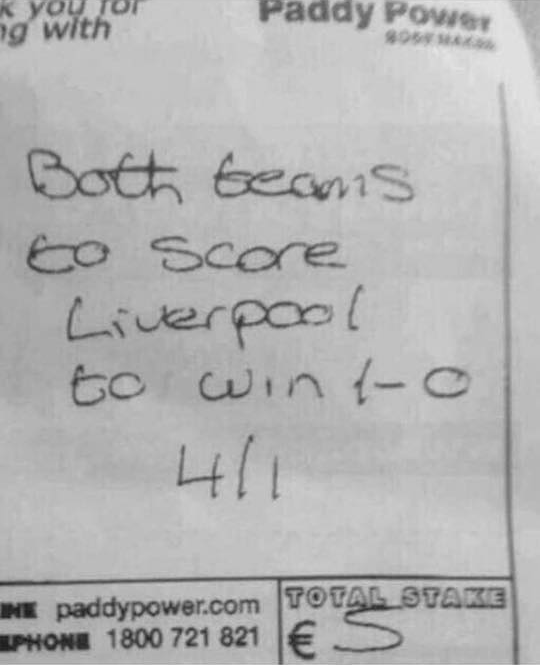 k you for
ng with
Paddy Power
BOOKMAKER
Both teams
to score
Liverpool
to win 1-0
4/1
INE paddypower.com
EPHONE 1800 721 821
TOTAL STAKE
€ 5